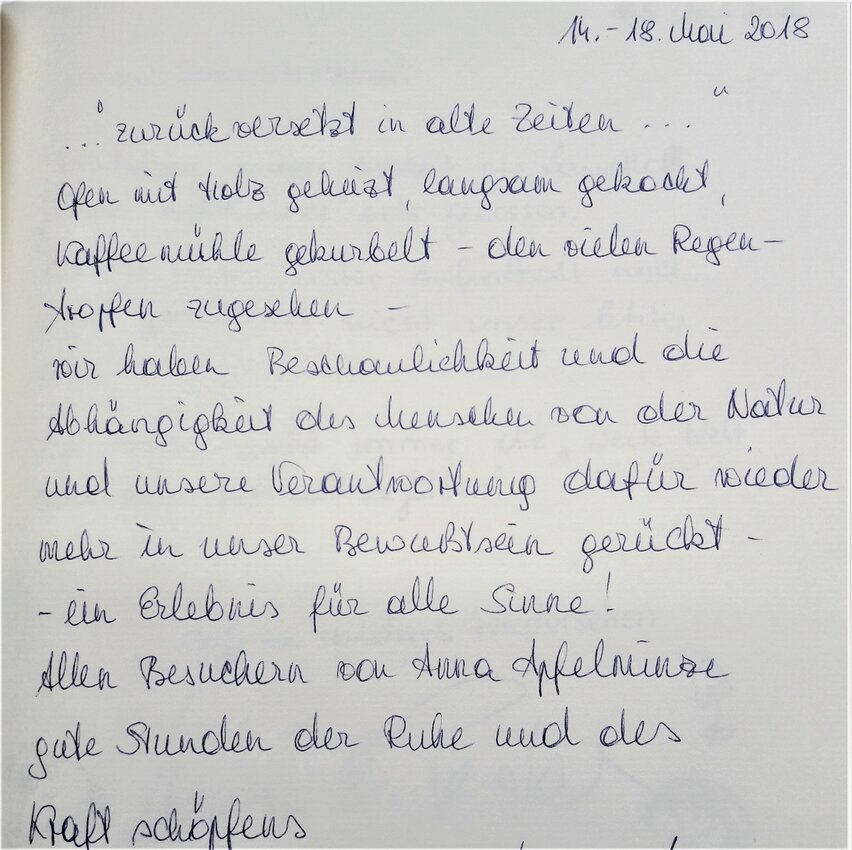 14.-18. Mai 2018
..."zurückversetzt in alte Zeiten ..."
Ofen mit Holz geheizt, langsam gekocht,
Kaffeemühle gekurbelt - den vielen Regen-
tropfen zugesehen -
wir haben Beschaulichkeit und die
Abhängigkeit des Menschen von der Natur
und unsere Verantwortung dafür wieder
mehr in unser Bewußtsein gerückt -
- ein Erlebnis für alle Sinne!
Allen Besuchern von Anna Apfelminze
gute Stunden der Ruhe und des
Kraft schöpfens